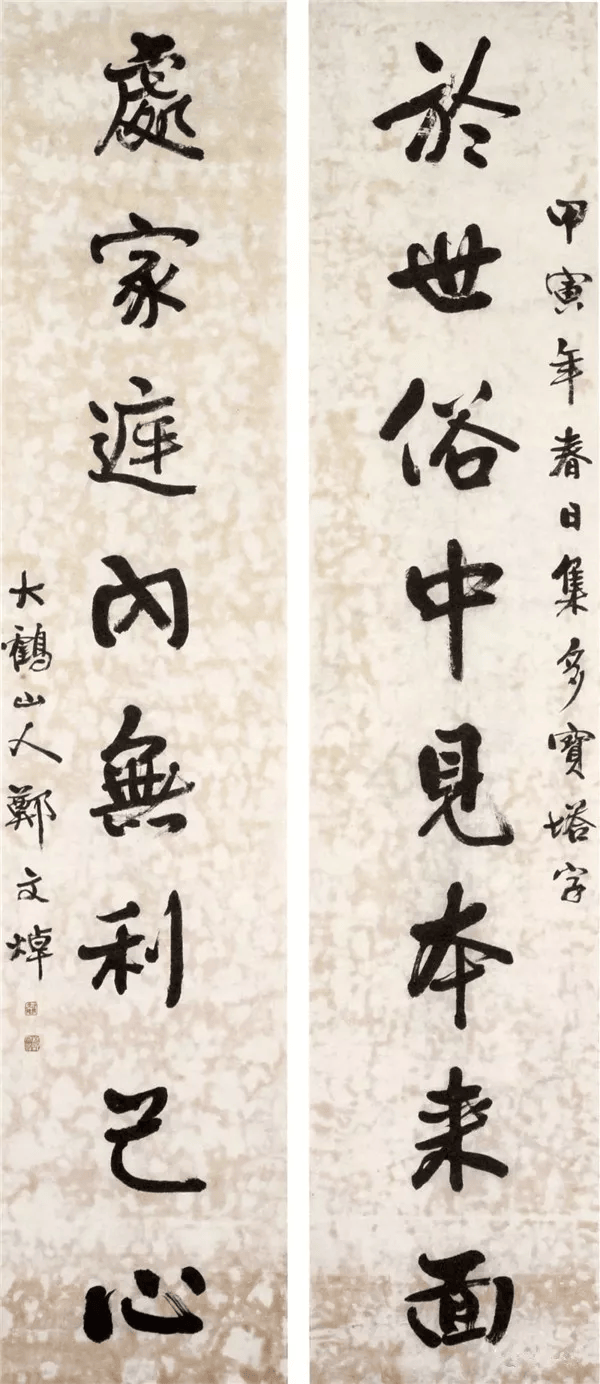 甲寅年春日集多寶塔字
於世俗中見本来面
處家庭内無利己心
大鶴山人鄭文焯